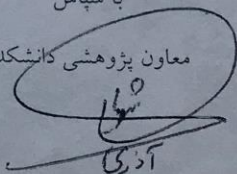 با سپاس
معاون پژوهشی دانشکد
آذری